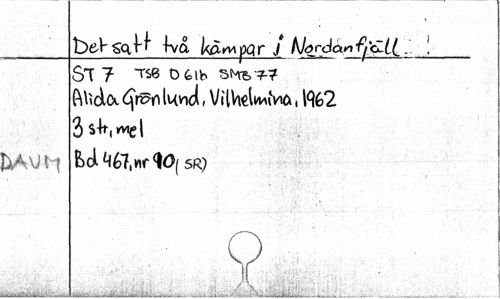 Det satt två kämpar i Nordanfjäll
ST 7 TSB D 61b SMB 77
Alida Grönlund, Vilhelmina, 1962
3 str, mel
DAUM Bd 467, nr 90 (SR)